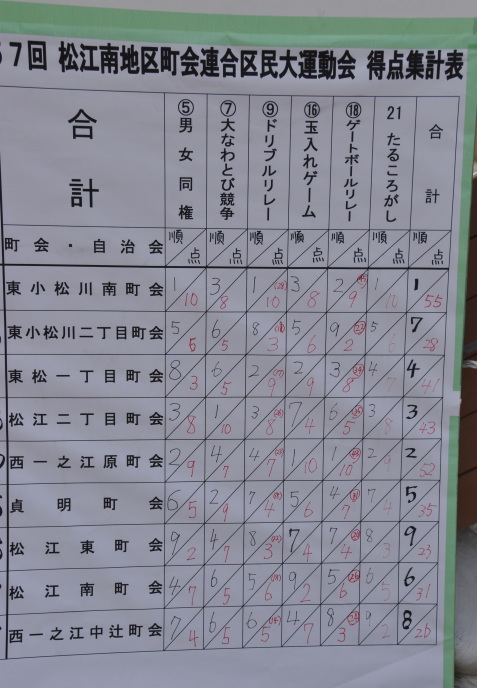 57回 松江南地区町会連合区民大運動会 得点集計表
合計 ⑤男女同権 ⑦大なわとび競争 ⑨ドリブルリレー ⑯玉入れゲーム ⑱ゲートボールリレー 21たるころがし 合計
町会・自治会 順点 順点 順点 順点 順点 順点 順点
東小松川南町会 1 10 3 8 1 10 3 8 2 9 1 10 1 55
東小松川二丁目町会 5 6 6 5 8 3 5 6 9 2 5 6 7 28
東松一丁目町会 8 3 6 5 2 9 2 9 3 8 4 7 4 41
松江二丁目町会 3 8 1 10 3 8 7 4 6 5 3 8 3 43
西一之江原町会 2 9 4 7 4 7 1 10 1 10 2 9 2 52
貞明町会 6 5 2 9 7 4 5 6 4 7 7 4 5 35
松江東町会 9 2 4 7 8 3 7 4 7 4 8 3 9 23
松江南町会 4 7 6 5 5 6 9 2 5 6 6 5 6 31
西一之江中辻町会 7 4 6 5 6 5 4 7 8 3 9 2 8 26